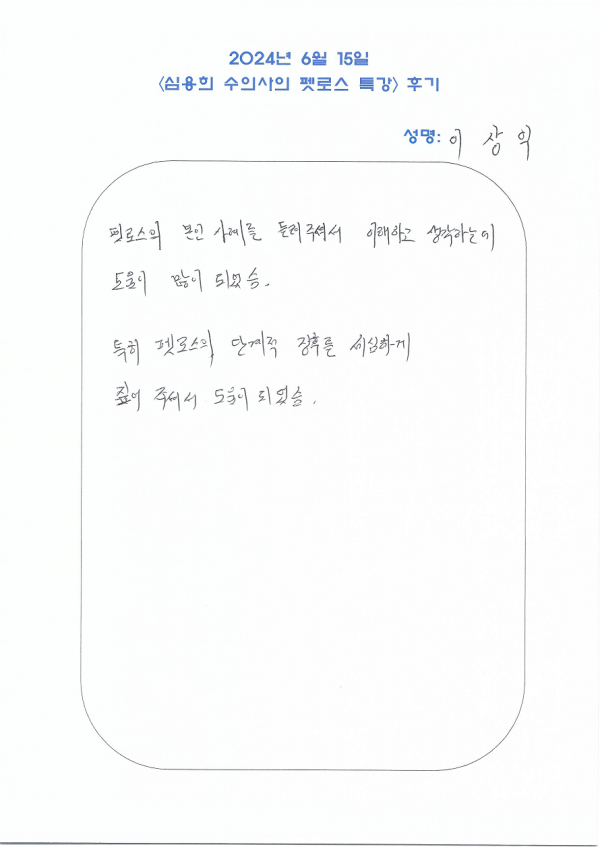 2024년 6월 15일
<심용희 수의사의 펫로스 특강> 후기
성명: 이 상 익
펫로스의 본인 사례를 들려주셔서 이해하고 생각하는데
도움이 많이 되었슴.
특히 펫로스의 단계적 징후를 세심하게
짚어 주셔서 도움이 되었슴.